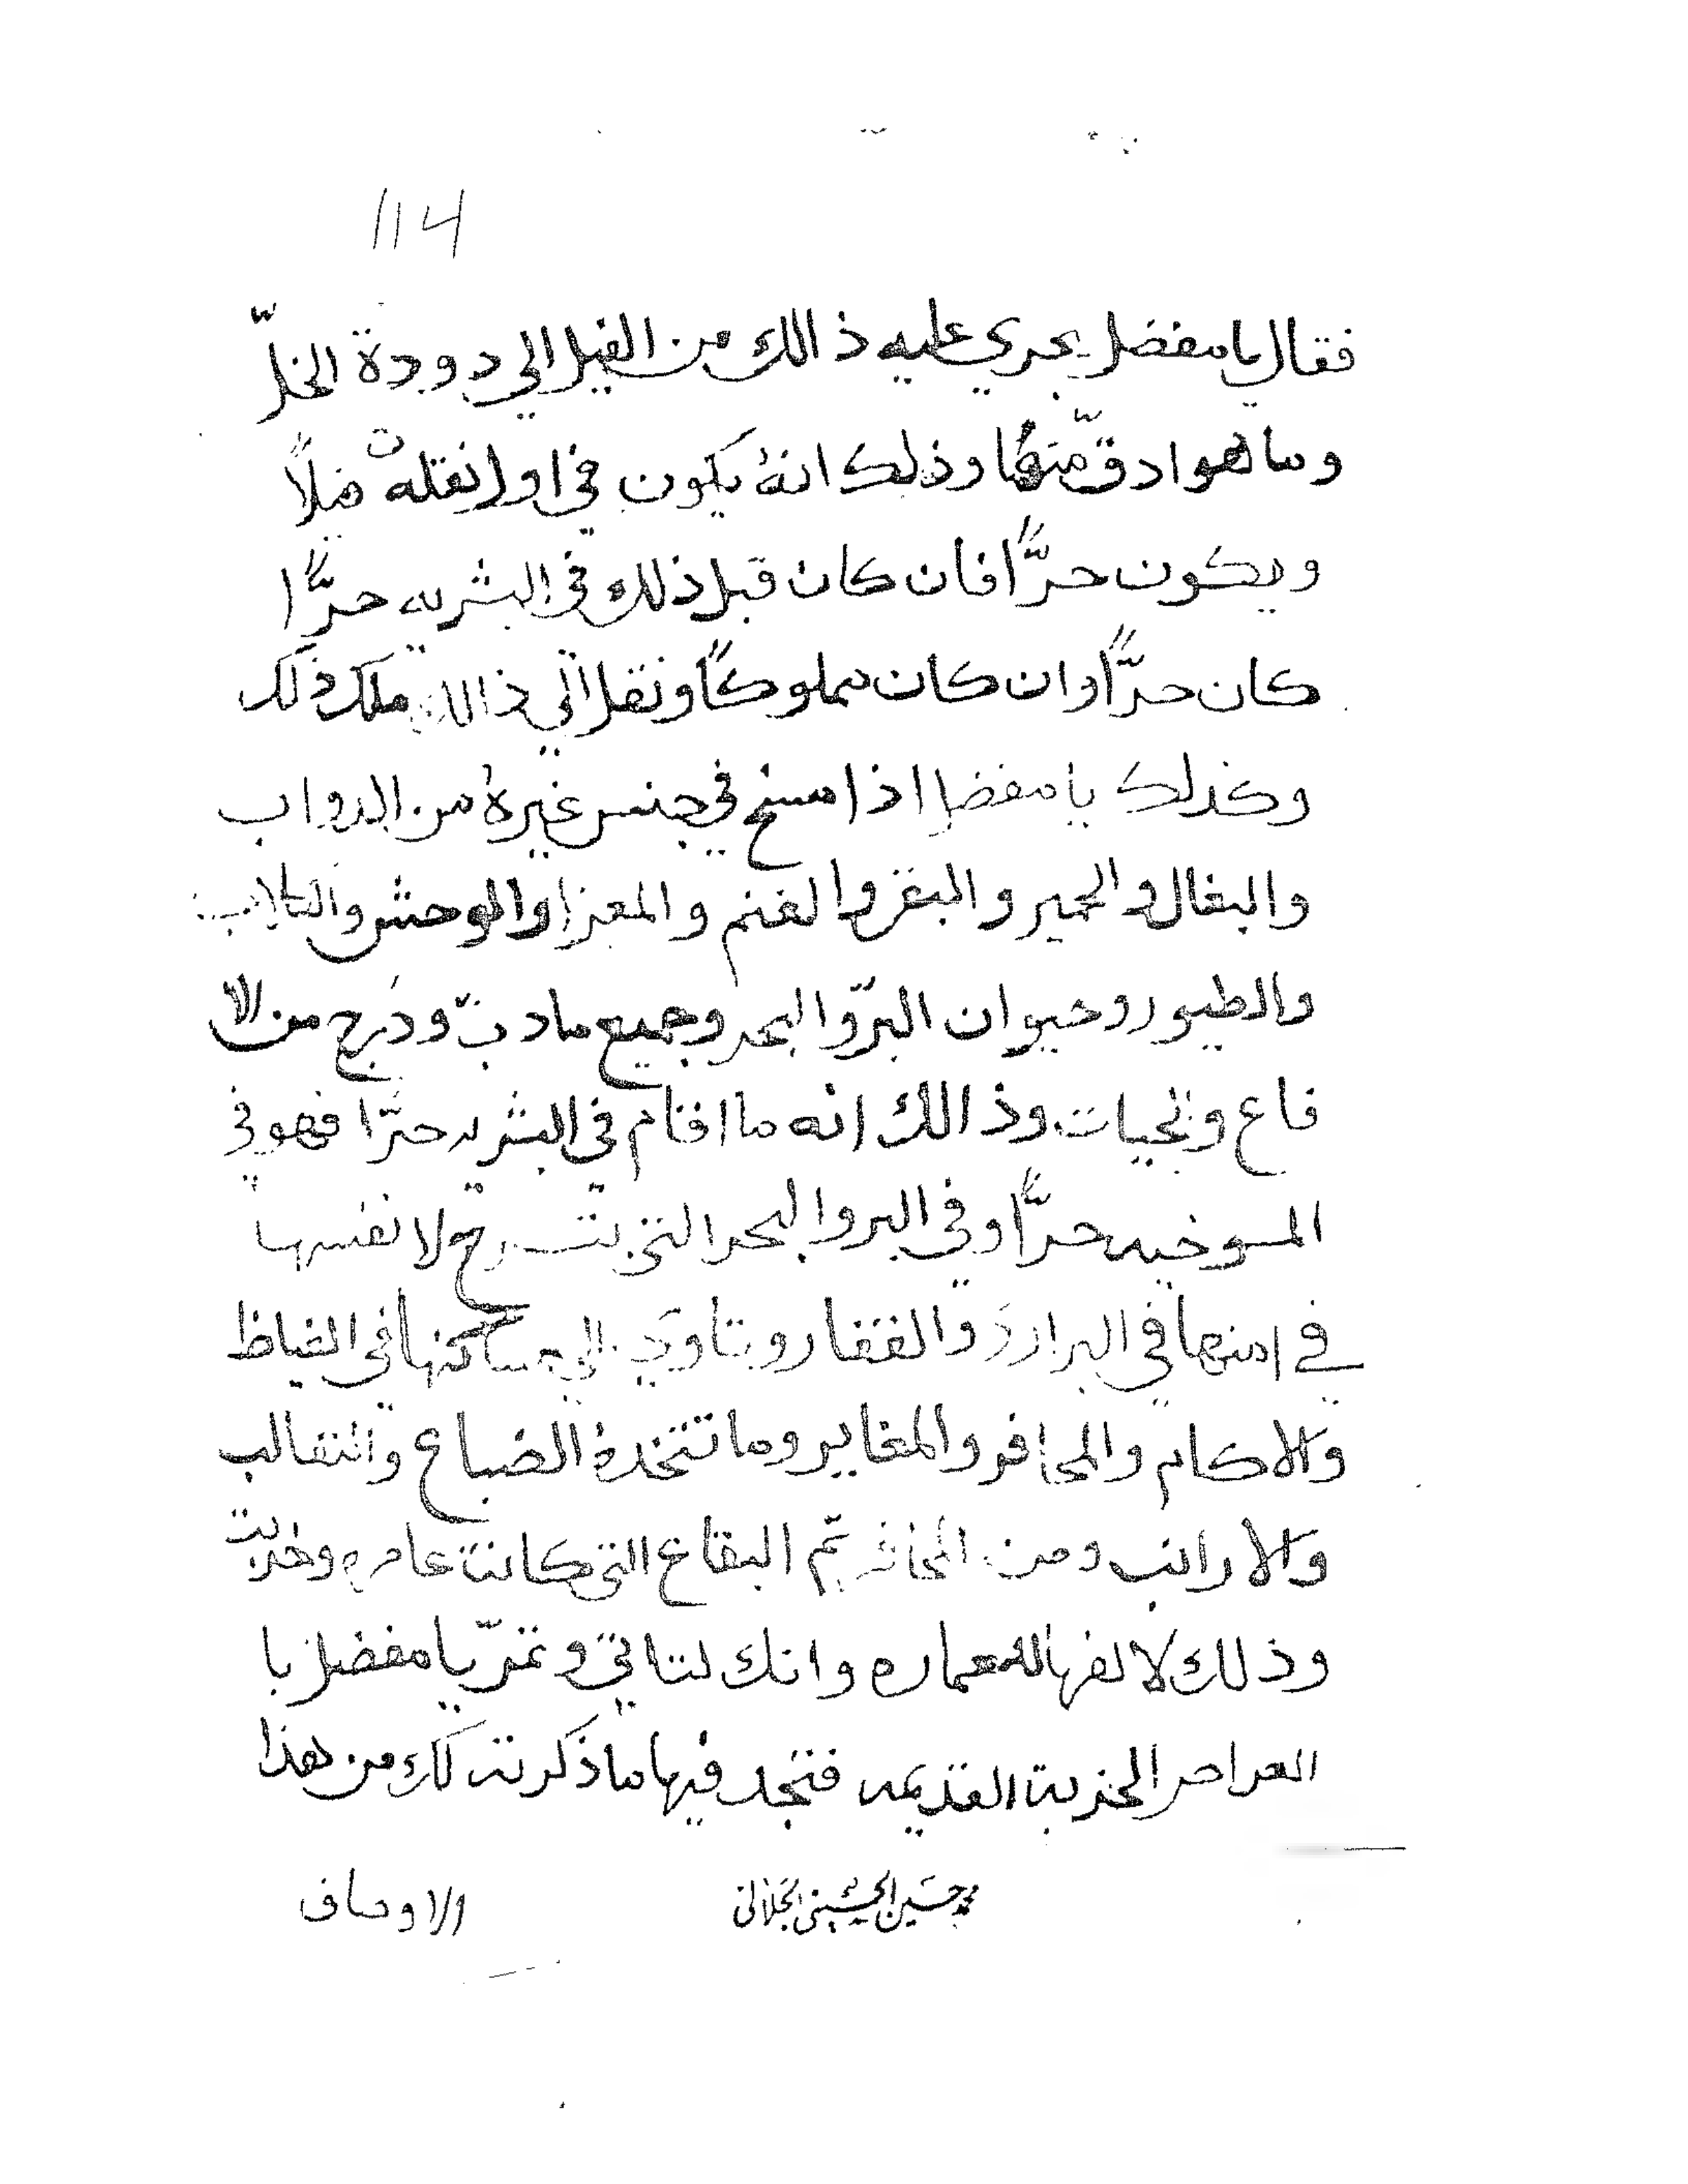 114
فقال يا مفضل يجري عليه ذالك من الفيل الي دودة الخلّ
وما هو ادقّ منها وذلك انهُ يكون في اول نقلته فيلاً
ويكون حرًّا فان كان قبل ذلك في البشريه حرًّا
كان حرًّا وان كان مملوكاً ونقل الي ذالك ملك ذلك
وكذلك يا مفضل اذا مسخ في جنس غيرهُ من الدواب
والبغال والحمير والبقر والغنم والمعزا والوحش والكلاب
والطيور وحيوان البرّ والبحر وجميع ما دبّ ودرج من الا
فاع والحيات وذالك انه ما اقام في البشريه حرًّا فهو في
المسوخيه حرًّا وفي البر والبحر التي تسرح لانفسها
في امنها في البراري والقفار وتتاوي الي مساكنها في الغياظ
والاكام والمحافر والمغاير وما تتخذهُ الضباع والثعالب
والارانب ومن ثم البقاع التي كانت عامره وخربت
وذلك لالفها للعماره وانك لتاتي وتمرّ يا مفضل با
الخربة القديمه فتجد فيها ما ذكرت لك من هذا
محمد حسين الحسيني الجلالي
الاوصاف